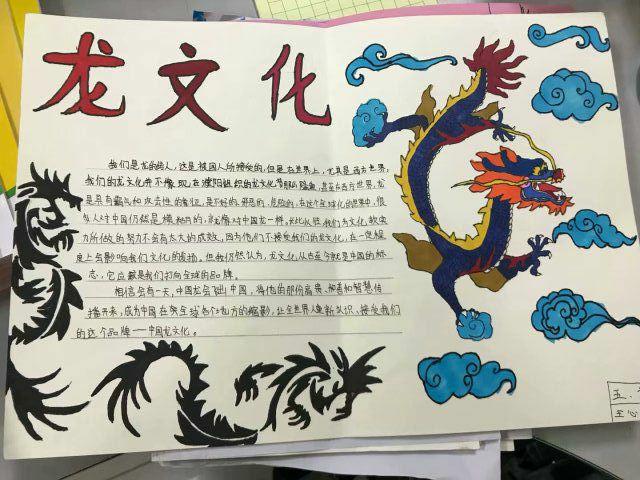 龙文化
我们是龙的传人,这是被国人所接受的,但是在世界上,尤其是西方世界,
我们的龙文化并不像现在濮阳组织的龙文化 甚至在西方世界,龙
是具有霸气和攻击性的象征,是不好的,邪恶的,危险的,在这个全球化的世界中,很
多人对中国仍然是模糊的,就像对中国龙一样,长此以往我们为文化软实
力所做的努力不会有太大的成效,因为他们不接受我们的龙文化,在一定程
度上会影响我们文化的传播,但我仍然认为,龙文化从古至今就是中国的标
志,它应该是我们打向全球的品牌。
相信会有一天,中国龙会飞出中国,将他的那份 和智慧传
播开来,成为中国在全球各个地方的缩影,让全世界人重新认识,接受我们
的这个品牌——中国龙文化。
五.
至心